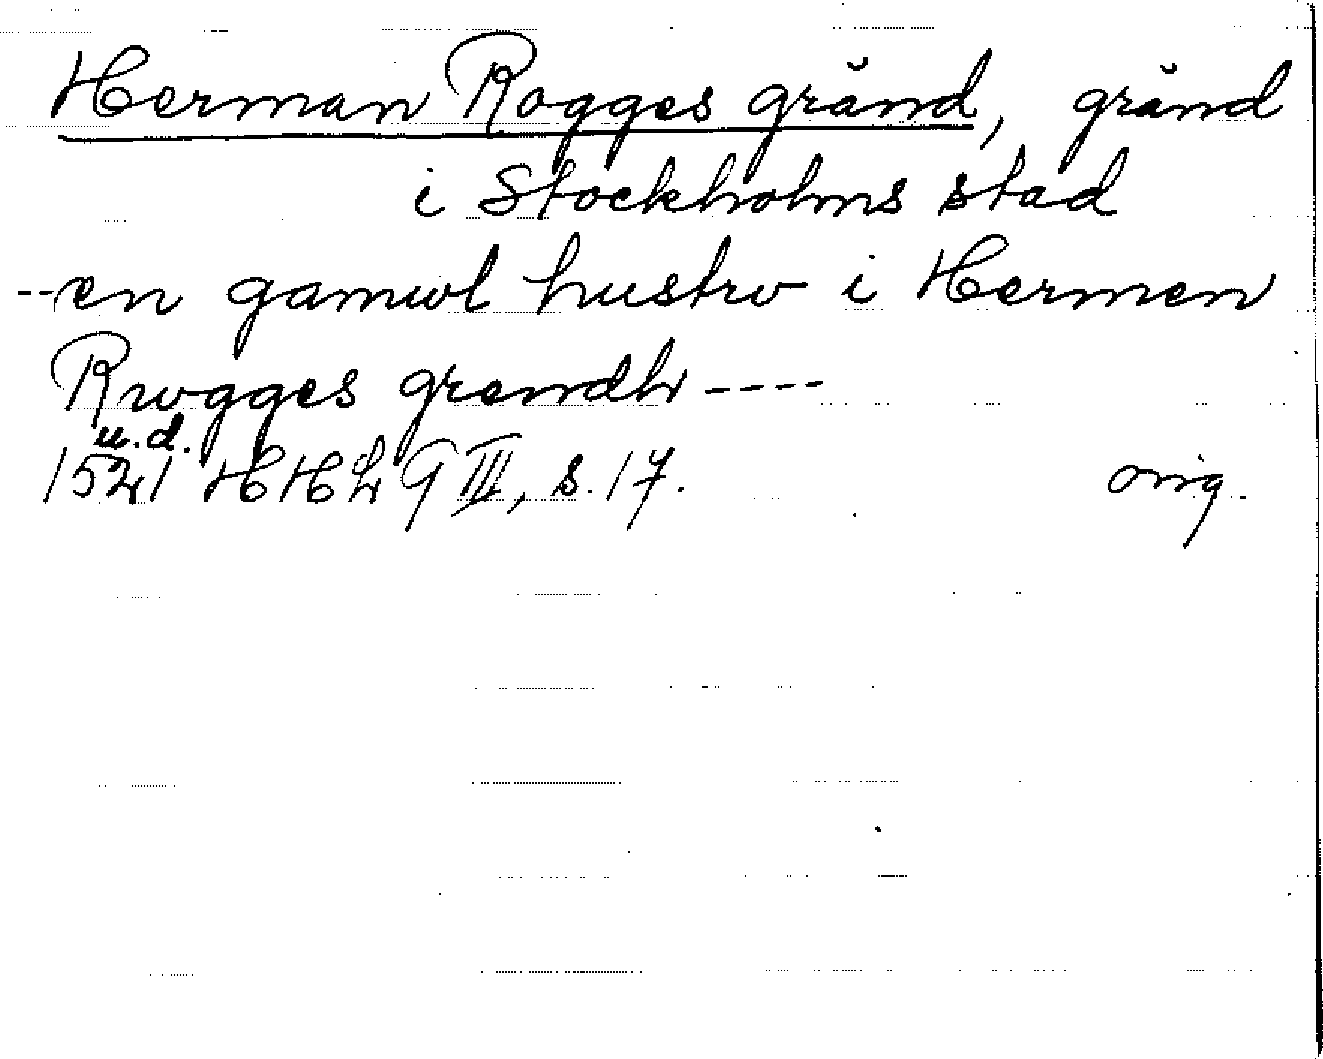 Herman Rogges gränd, gränd
i Stockholms stad
--en gamwl hustrv i Hermen
Rwgges grendh----
u.d.
1521 HHLG III, s. 17. orig.